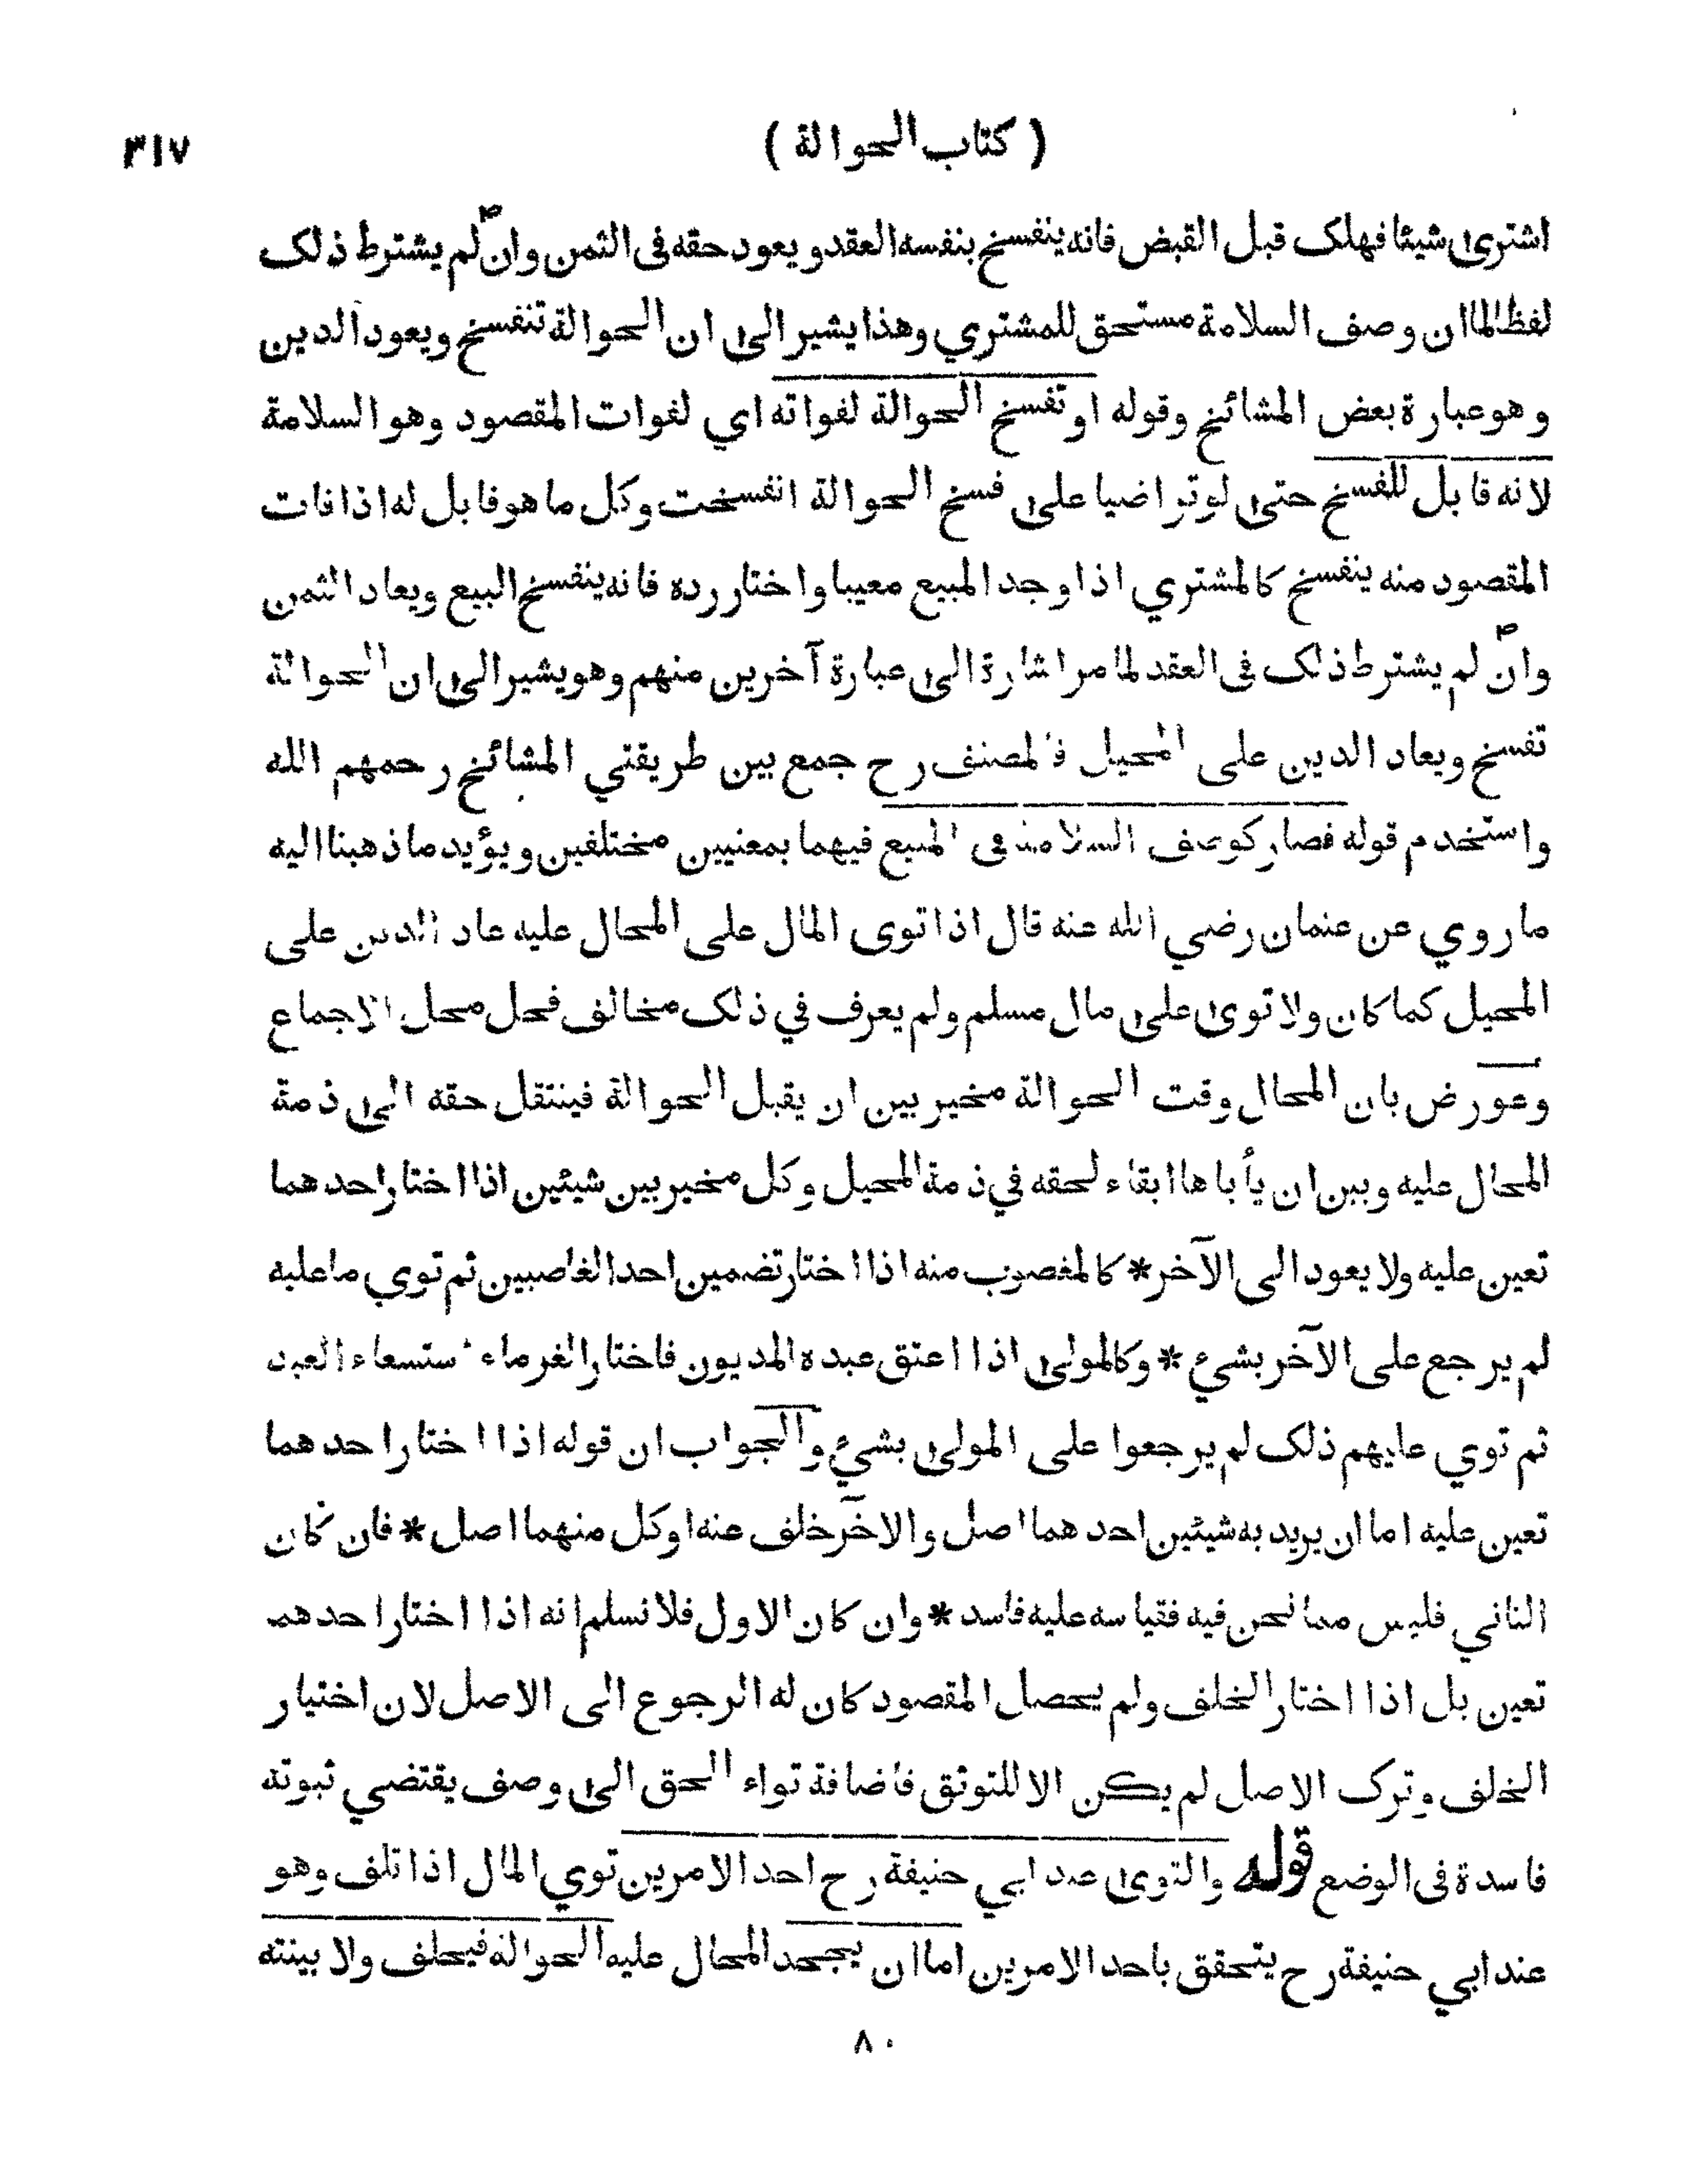 ( كتاب الحوالة )
٣١٧
اشترى شيئا فهلك قبل القبض فانه ينفسخ بنفسه العقد ويعود حقه في الثمن وان لم يشترط ذلك
لفظا لما ان وصف السلامة مستحق للمشتري وهذا يشير الى ان الحوالة تنفسخ ويعود الدين
وهو عبارة بعض المشائخ وقوله او تفسخ الحوالة لفواته اي لفوات المقصود وهو السلامة
لانه قابل للفسخ حتى لو تراضيا على فسخ الحوالة انفسخت وكل ما هو قابل له اذا فات
المقصود منه ينفسخ كالمشتري اذا وجد المبيع معيبا واختار رده فانه ينفسخ البيع ويعاد الثمن
وان لم يشترط ذلك في العقد لما مر اشارة الى عبارة آخرين منهم وهو يشير الى ان الحوالة
تفسخ ويعاد الدين على المحيل فالمصنف رح جمع بين طريقتي المشائخ رحمهم الله
واستخدم قوله فصار كوصف السلامة في المبيع فيهما بمعنيين مختلفين ويؤيد ما ذهبنا اليه
ما روي عن عثمان رضي الله عنه قال اذا توى المال على المحال عليه عاد الدين على
المحيل كما كان ولا توى على مال مسلم ولم يعرف في ذلك مخالف فحل محل الاجماع
وعورض بان المحال وقت الحوالة مخير بين ان يقبل الحوالة فينتقل حقه الى ذمة
المحال عليه وبين ان يأباها ابقاء لحقه في ذمة المحيل وكل مخير بين شيئين اذا اختار احدهما
تعين عليه ولا يعود الى الآخر * كالمغصوب منه اذا اختار تضمين احد الغاصبين ثم توي ما عليه
لم يرجع على الآخر بشيء * وكالمولى اذا اعتق عبده المديون فاختار الغرماء استسعاء العبد
ثم توي عليهم ذلك لم يرجعوا على المولى بشيء والجواب ان قوله اذا اختار احدهما
تعين عليه اما ان يريد به شيئين احدهما اصل والآخر خلف عنه او كل منهما اصل * فان كان
الثاني فليس مما نحن فيه فقياسه عليه فاسد * وان كان الاول فلا نسلم انه اذا اختار احدهما
تعين بل اذا اختار الخلف ولم يحصل المقصود كان له الرجوع الى الاصل لان اختيار
الخلف وترك الاصل لم يكن الا للتوثق فاضافة تواء الحق الى وصف يقتضي ثبوته
فاسدة في الوضع قوله والتوى عند ابي حنيفة رح احد الامرين توي المال اذا تلف وهو
عند ابي حنيفة رح يتحقق باحد الامرين اما ان يجحد المحال عليه الحوالة فيحلف ولا بينته
٨٠